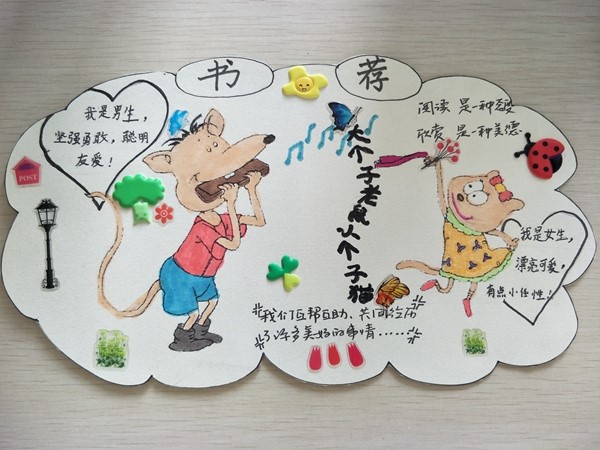 书荐
我是男生，
坚强勇敢，聪明
友爱！
POST
大个子老鼠小个子猫
阅读 是一种享受
欣赏 是一种美德
我是女生，
漂亮可爱，
有点小任性！
我们互帮互助、共同经历
了许多美好的事情……